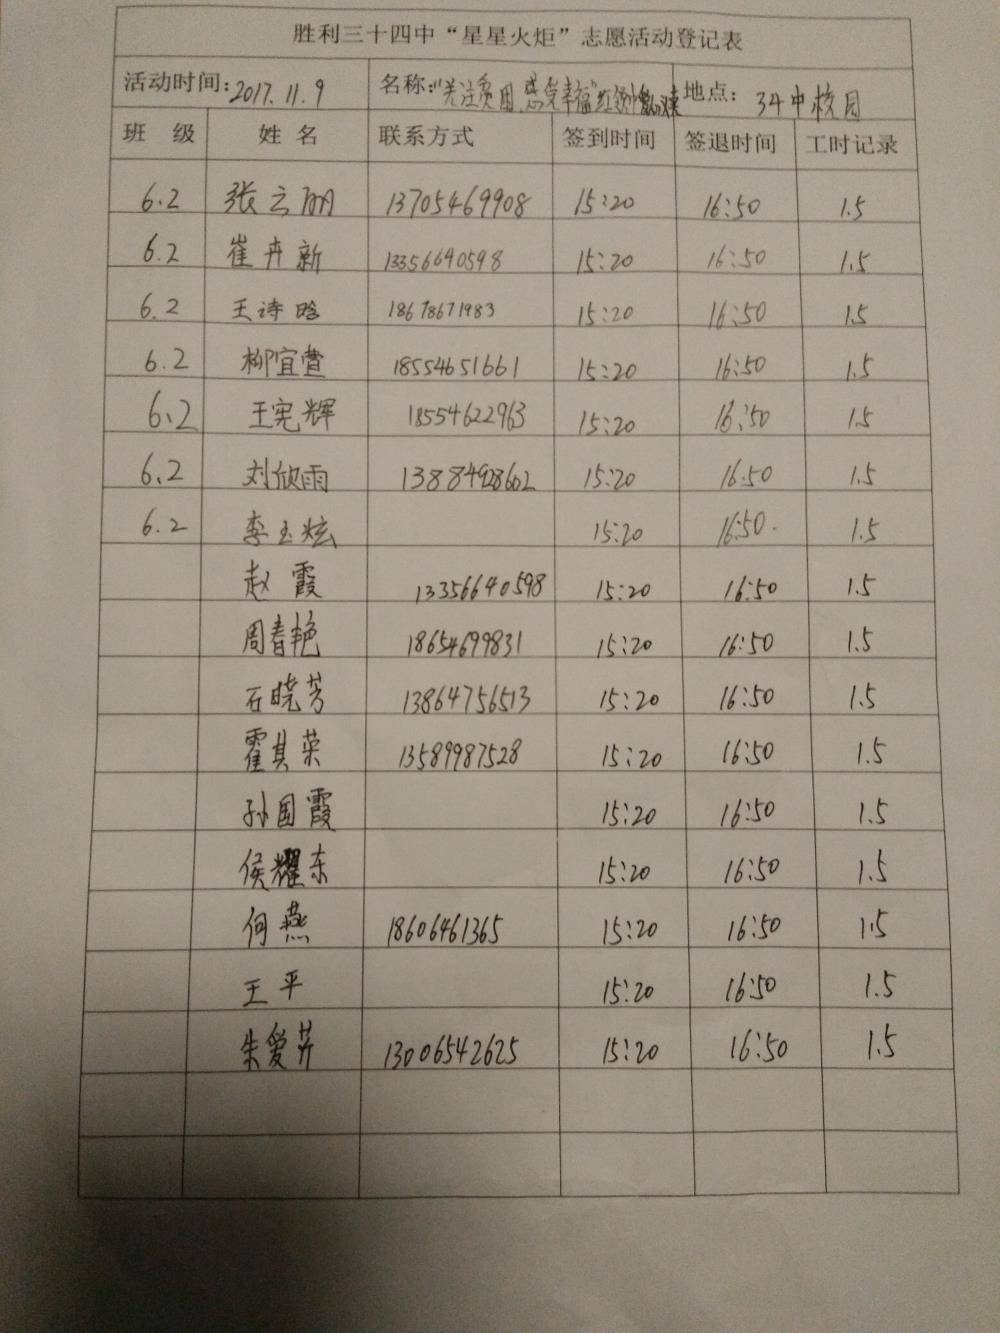 胜利三十四中“星星火炬”志愿活动登记表
活动时间：2017.11.9 名称：“关注贫困、感党幸福”红领巾 地点：34中校园
班 级 姓 名 联系方式 签到时间 签退时间 工时记录
6.2 张云丽 13705469908 15:20 16:50 1.5
6.2 崔卉新 13356640598 15:20 16:50 1.5
6.2 王诗晗 18678671983 15:20 16:50 1.5
6.2 柳宜萱 18554651661 15:20 16:50 1.5
6.2 王宪辉 18554622963 15:20 16:50 1.5
6.2 刘欣雨 13884928602 15:20 16:50 1.5
6.2 李玉炫 15:20 16:50. 1.5
赵霞 13356640598 15:20 16:50 1.5
周春艳 18654699831 15:20 16:50 1.5
石晓芳 13864756513 15:20 16:50 1.5
霍其荣 13589987528 15:20 16:50 1.5
孙国霞 15:20 16:50 1.5
侯耀东 15:20 16:50 1.5
何燕 18606461365 15:20 16:50 1.5
王平 15:20 16:50 1.5
朱爱芹 13006542625 15:20 16:50 1.5